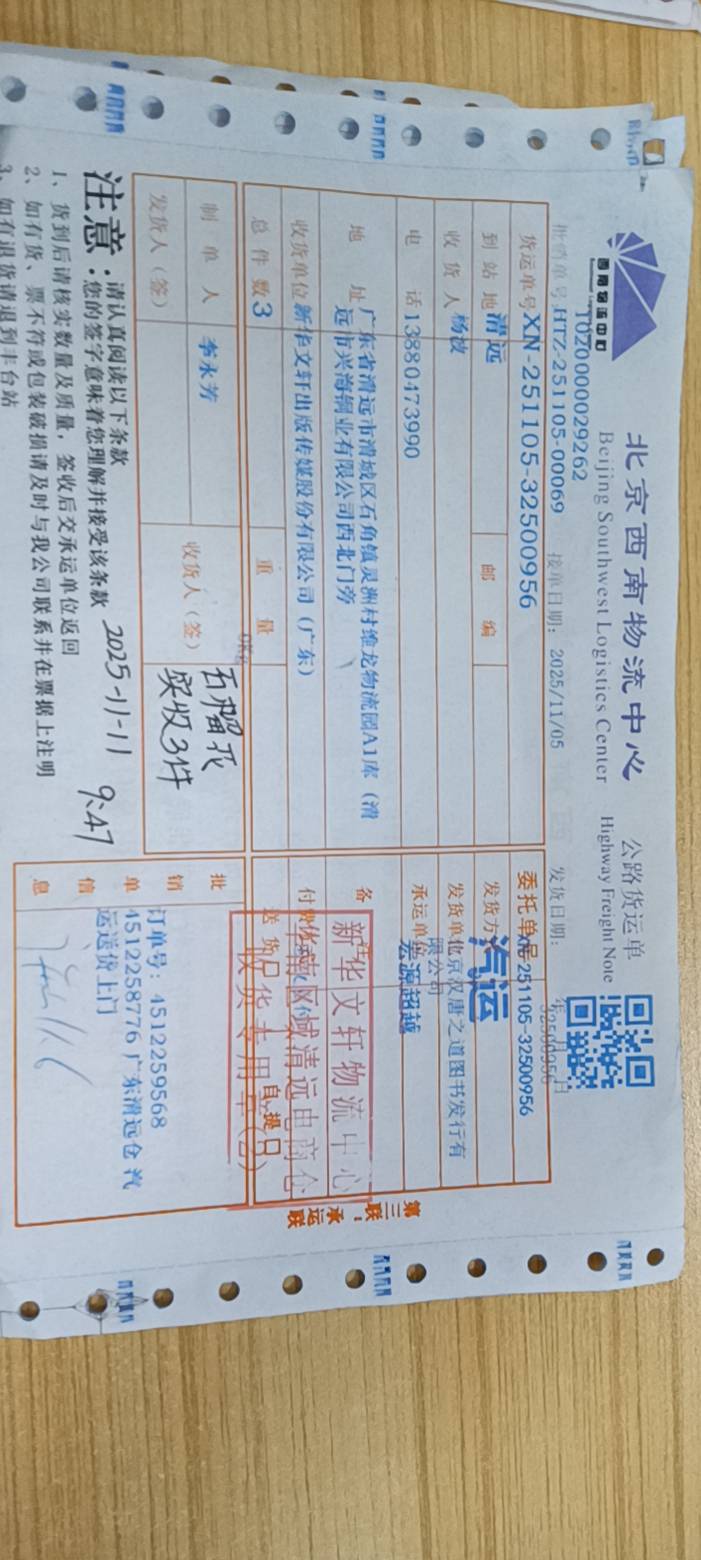 北京西南物流中心 公路货运单
Beijing Southwest Logistics Center Highway Freight Note
西南物流中心
T0200000029262
批销单号 HTZ-251105-00069 接单日期: 2025/11/05 发货日期: 年 日
32500956
货运单号 XN-251105-32500956 委托单号 251105-32500956
到站地 清远 邮编 发货方 汽运
收货人 杨波 发货单位 北京汉唐之道图书发行有限公司
电话 13880473990 承运单位 宏源超越
地址 广东省清远市清城区石角镇灵洲村维龙物流园A1库（清
远市兴海铜业有限公司西北门旁 备
收货单位 新华文轩出版传媒股份有限公司（广东） 付费
总件数 3 重量 0KG 送货 自提
新华文轩物流中心
华南区域清远电商仓
收货专用章
制单人 李永芳 收货人（签） 石榴花
实收3件
发货人（签）
批销单信息
订单号: 4512259568
4512258776 广东清远仓 汽
运送货上门
注意: 请认真阅读以下条款
您的签字意味着您理解并接受该条款 2025-11-11 9:47
1、货到后请核实数量及质量，签收后交承运单位返回
2、如有货、票不符或包装破损请及时与我公司联系并在票据上注明
3、如有退货请退到丰台站
第三联：承运联